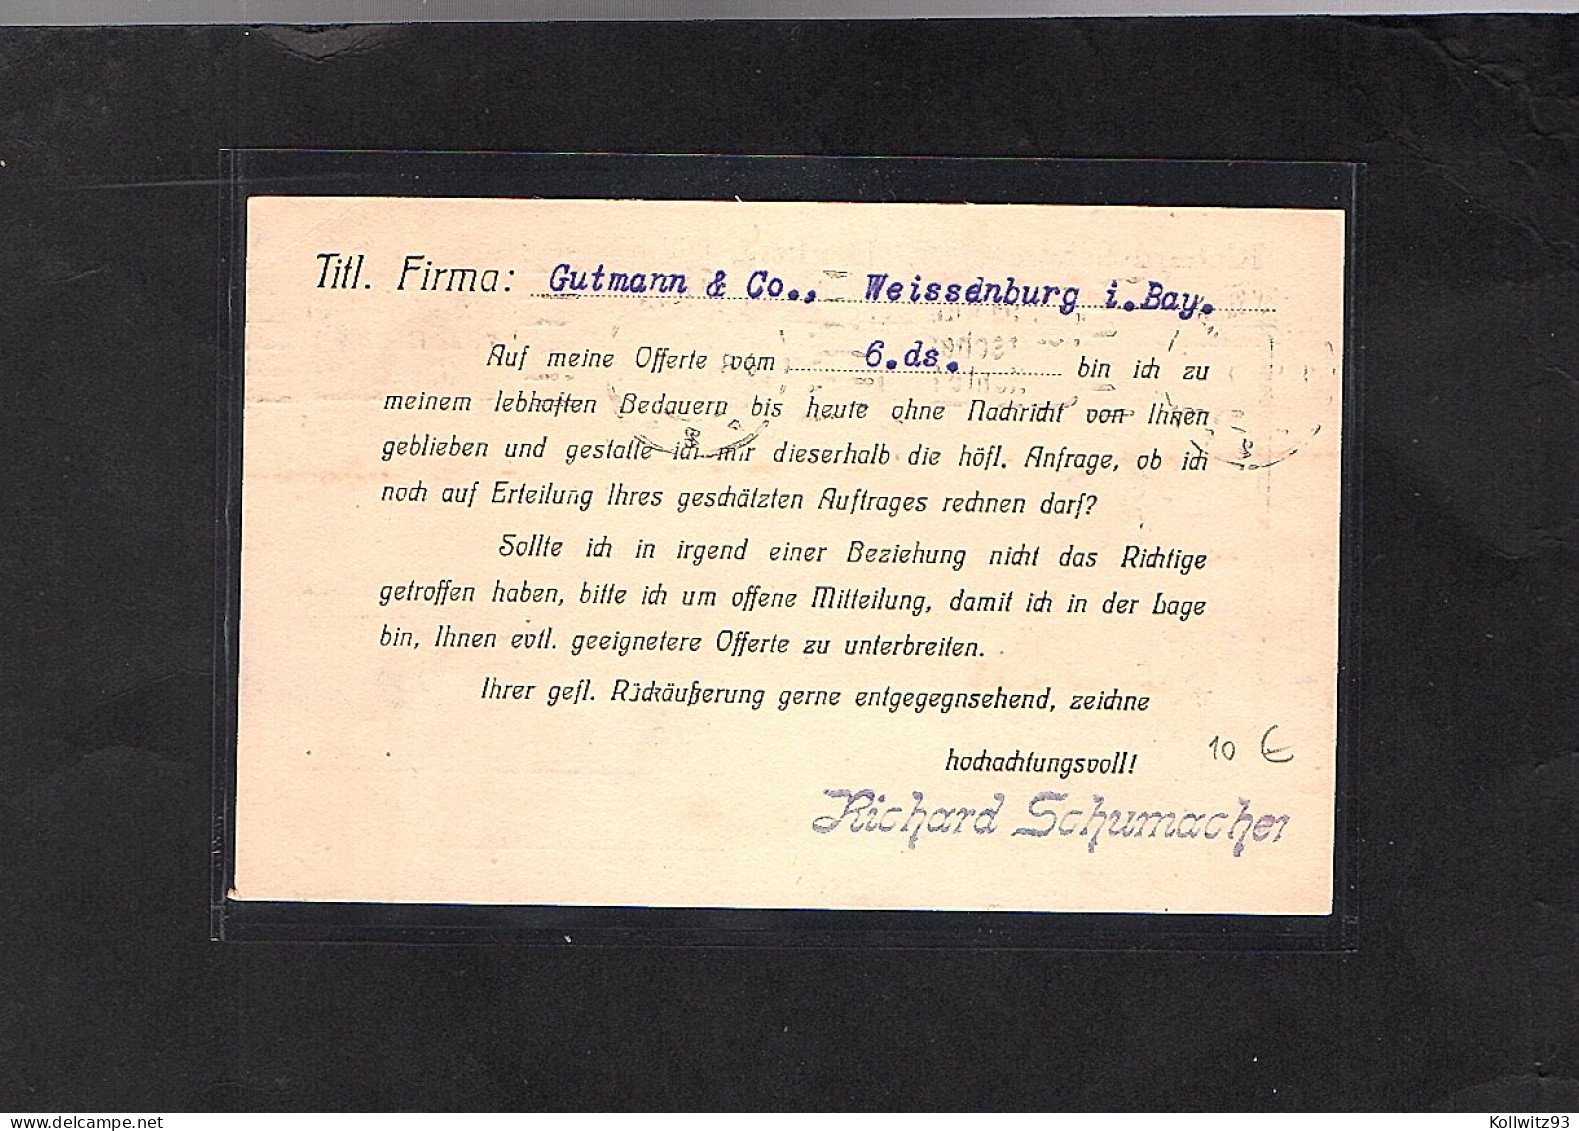 Titl. Firma: Gutmann & Co., Weissenburg i.Bay.
Auf meine Offerte vom 6.ds. bin ich zu
meinem lebhaften Bedauern bis heute ohne Nachricht von Ihnen
geblieben und gestatte ich mir dieserhalb die höfl. Anfrage, ob ich
noch auf Erteilung Ihres geschätzten Auftrages rechnen darf?
Sollte ich in irgend einer Beziehung nicht das Richtige
getroffen haben, bitte ich um offene Mitteilung, damit ich in der Lage
bin, Ihnen evtl. geeignetere Offerte zu unterbreiten.
Ihrer gefl. Rückäußerung gerne entgegegnsehend, zeichne
hochachtungsvoll!
10 €
Richard Schumacher
Kollwitz93